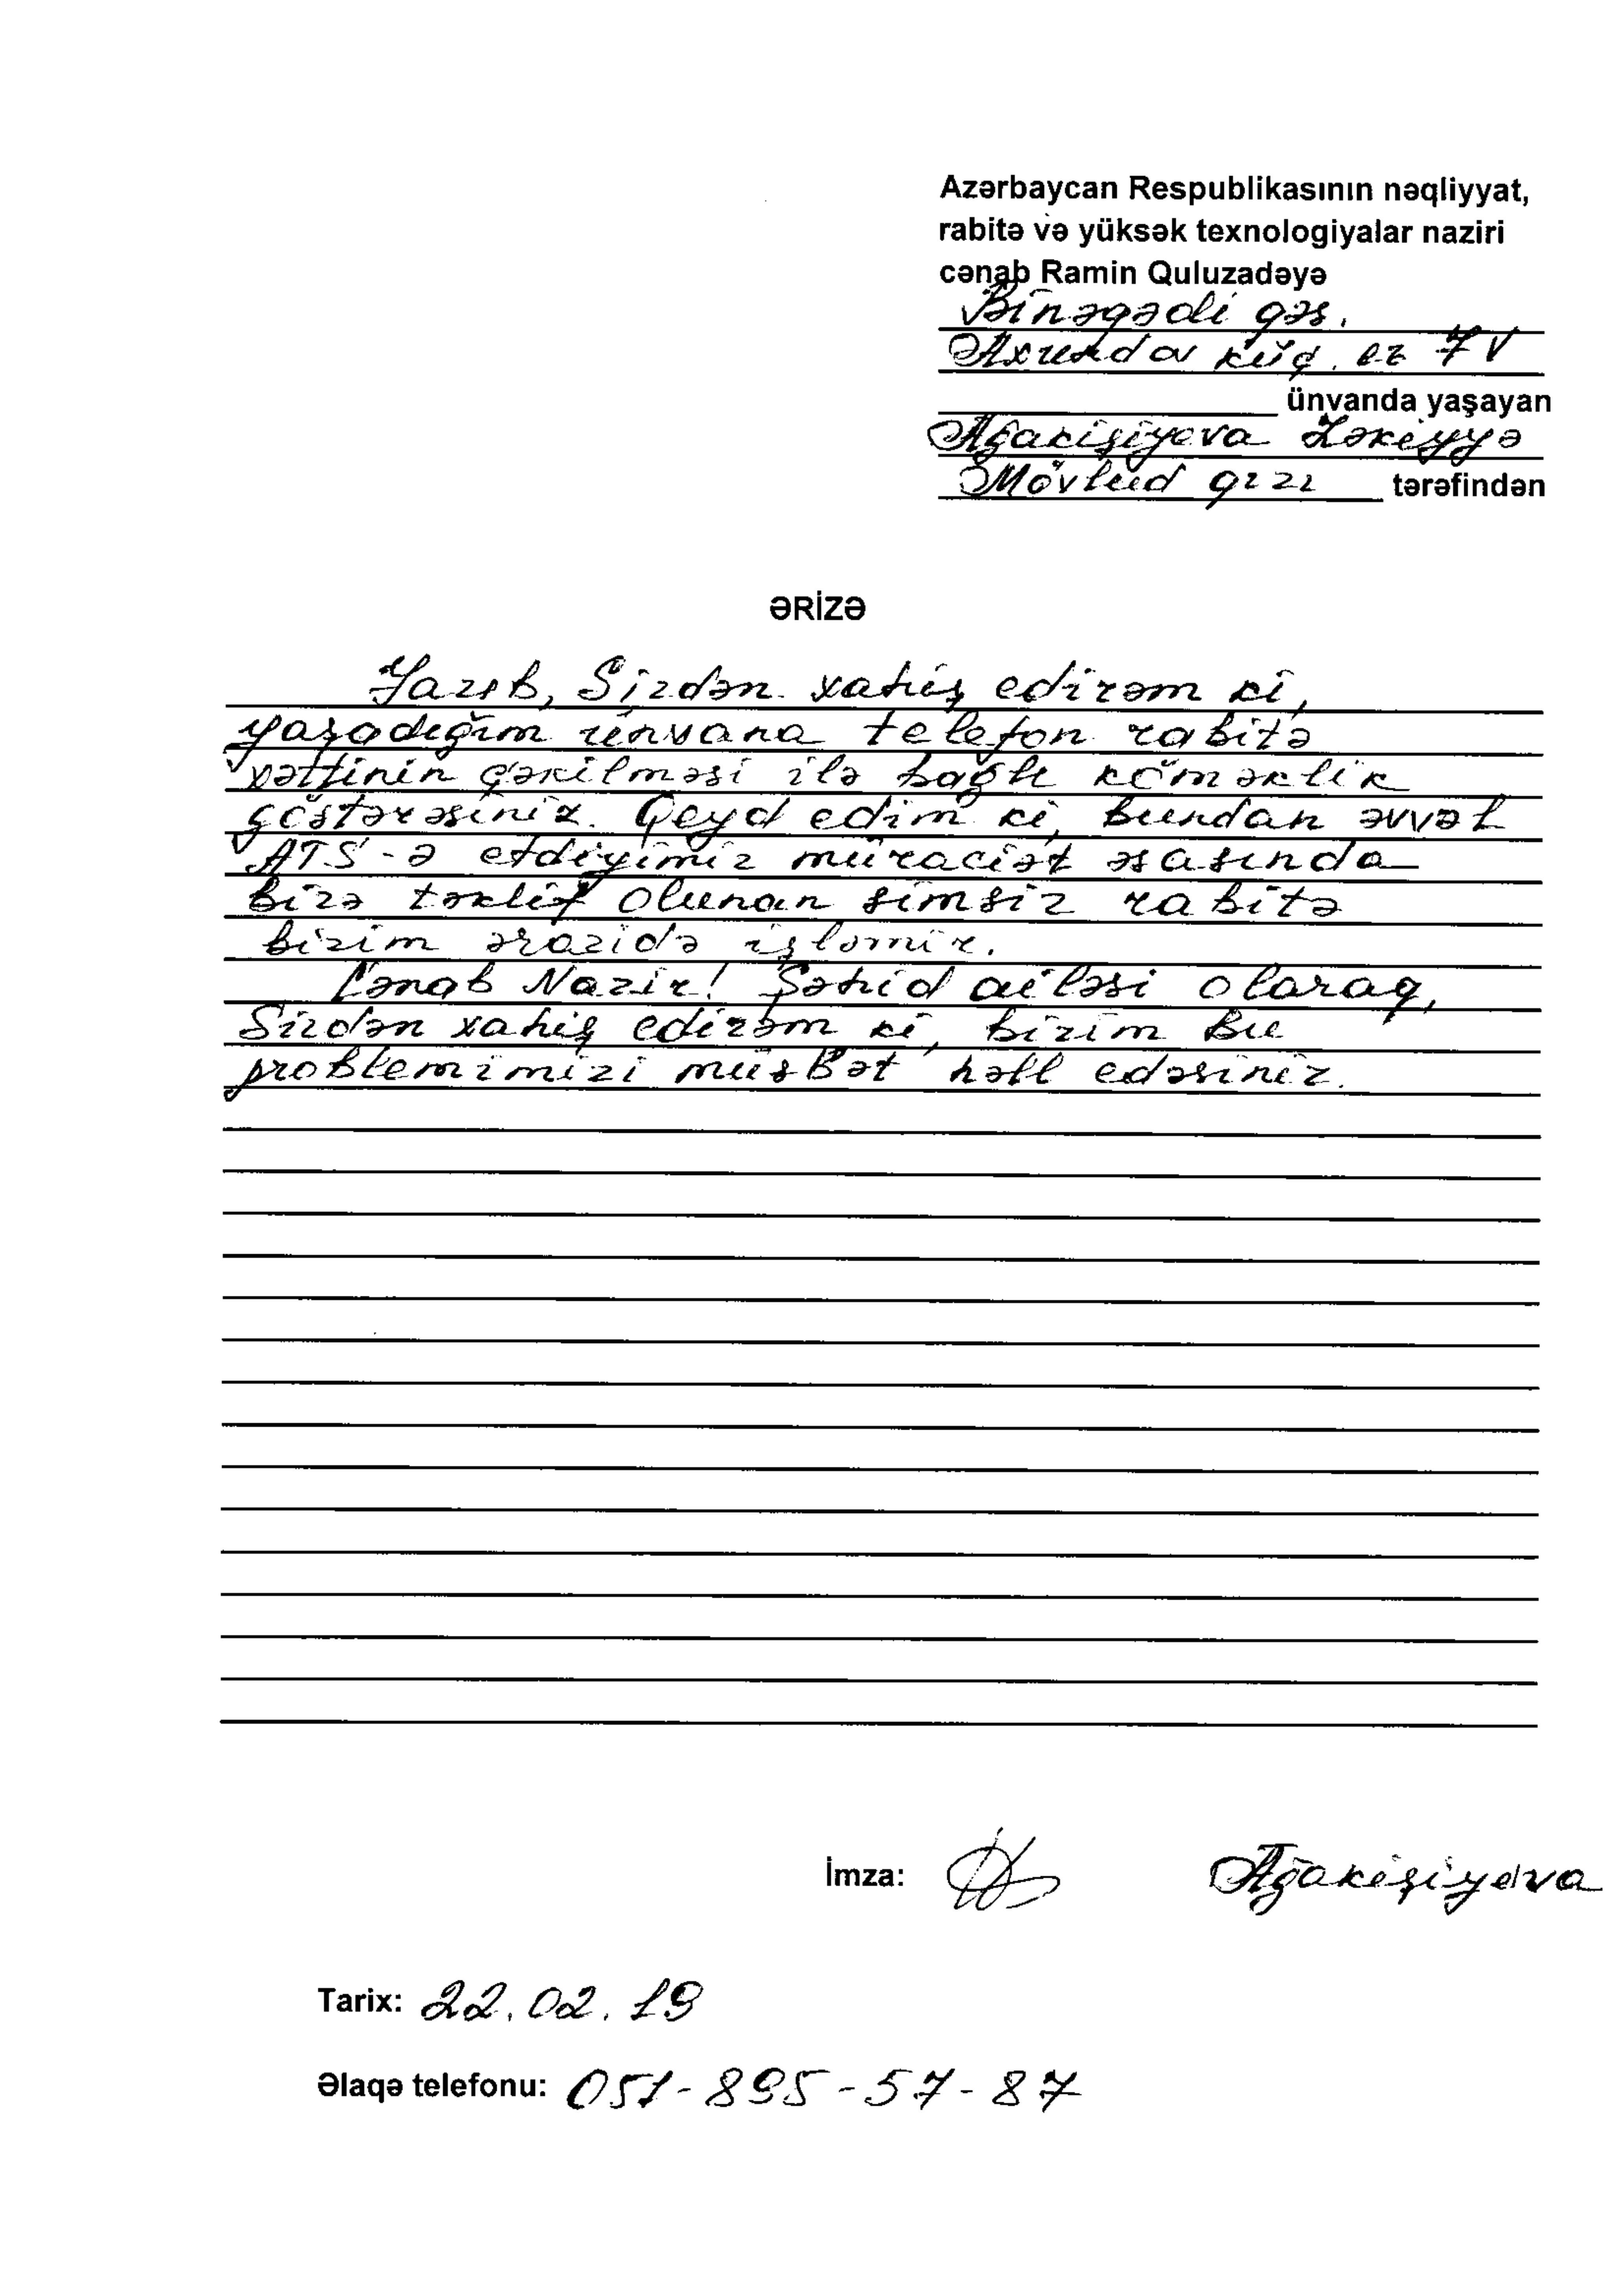 Azərbaycan Respublikasının nəqliyyat,
rabitə və yüksək texnologiyalar naziri
cənab Ramin Quluzadəyə
Binəqədi qəs.
Axundov küç. ev 7V
ünvanda yaşayan
Ağakişiyeva Zəkiyyə
Mövlud qızı tərəfindən
ƏRİZƏ
Yazıb, Sizdən xahiş edirəm ki,
yaşadığım ünvana telefon rabitə
xəttinin çəkilməsi ilə bağlı köməklik
göstərəsiniz. Qeyd edim ki, bundan əvvəl
ATS-ə etdiyimiz müraciət əsasında
bizə təklif olunan simsiz rabitə
bizim ərazidə işləmir.
Cənab Nazir! Şəhid ailəsi olaraq,
Sizdən xahiş edirəm ki, bizim bu
problemimizi müsbət həll edəsiniz.
İmza: Ağakişiyeva
Tarix: 22.02.19
Əlaqə telefonu: 051-895-57-87